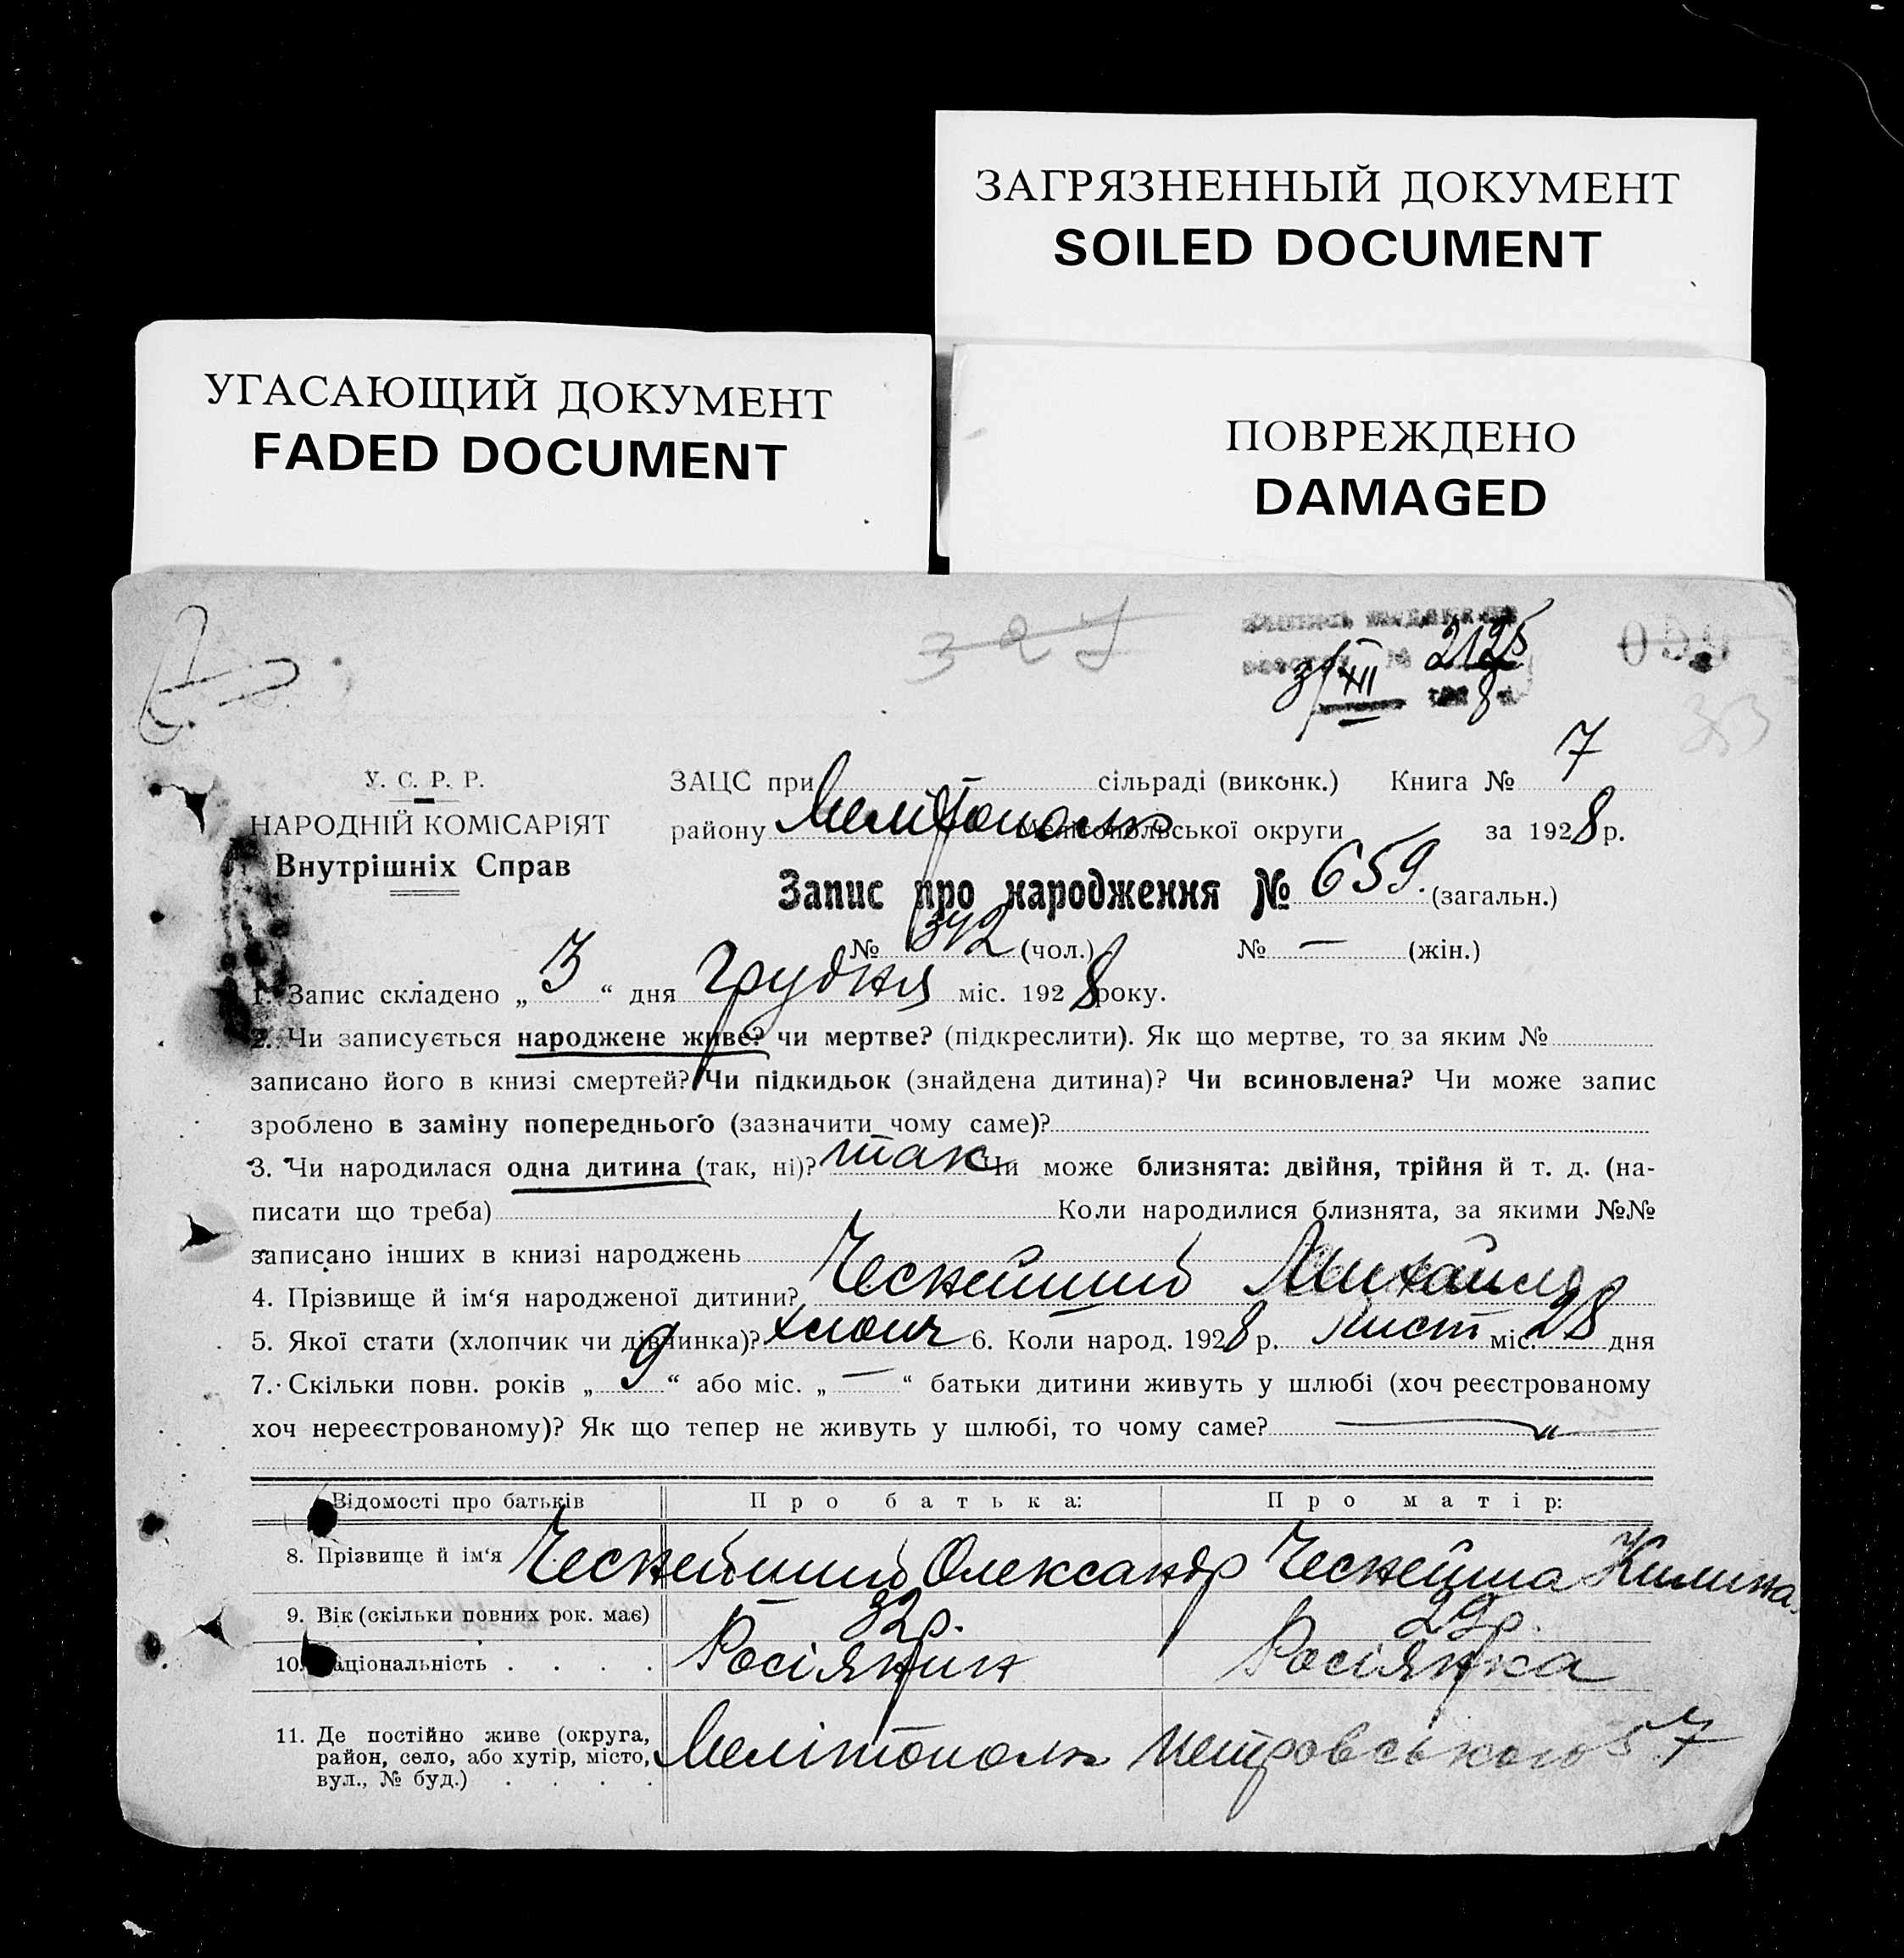 ЗАГРЯЗНЕННЫЙ ДОКУМЕНТ
SOILED DOCUMENT
УГАСАЮЩИЙ ДОКУМЕНТ
FADED DOCUMENT
ПОВРЕЖДЕНО
DAMAGED
327
2125
3/XII 8
33
У. С. Р. Р.
НАРОДНІЙ КОМІСАРІЯТ
Внутрішніх Справ
ЗАЦС при сільраді (виконк.) Книга № 7
району Мелітополь Мелітопольської округи за 1928 р.
Запис про народження № 659. (загальн.)
№ 342 (чол.) № — (жін.)
1. Запис складено „ 3 “ дня грудня міс. 1928 року.
2. Чи записується народжене живе? чи мертве? (підкреслити). Як що мертве, то за яким №
записано його в книзі смертей? Чи підкидьок (знайдена дитина)? Чи всиновлена? Чи може запис
зроблено в заміну попереднього (зазначити чому саме)?
3. Чи народилася одна дитина (так, ні)? так Чи може близнята: двійня, трійня й т. д. (на-
писати що треба) Коли народилися близнята, за якими №№
записано інших в книзі народжень
4. Прізвище й ім‘я народженої дитини? Ческейший Михайло
5. Якої стати (хлопчик чи дівчинка)? хлопч 6. Коли народ. 1928 р. Лист міс. 28 дня
7. Скільки повн. років „ 9 “ або міс. „ — “ батьки дитини живуть у шлюбі (хоч реєстрованому
хоч нереєстрованому)? Як що тепер не живуть у шлюбі, то чому саме? — „ —
Відомості про батьків Про батька: Про матір:
8. Прізвище й ім‘я Ческейший Олександр Ческейша Килина
9. Вік (скільки повних рок. має) 32 р. 29 р.
10. Національність . . . . Росіянин Росіянка
11. Де постійно живе (округа,
район, село, або хутір, місто,
вул., № буд.) . . . . Мелітополь Петровського 57